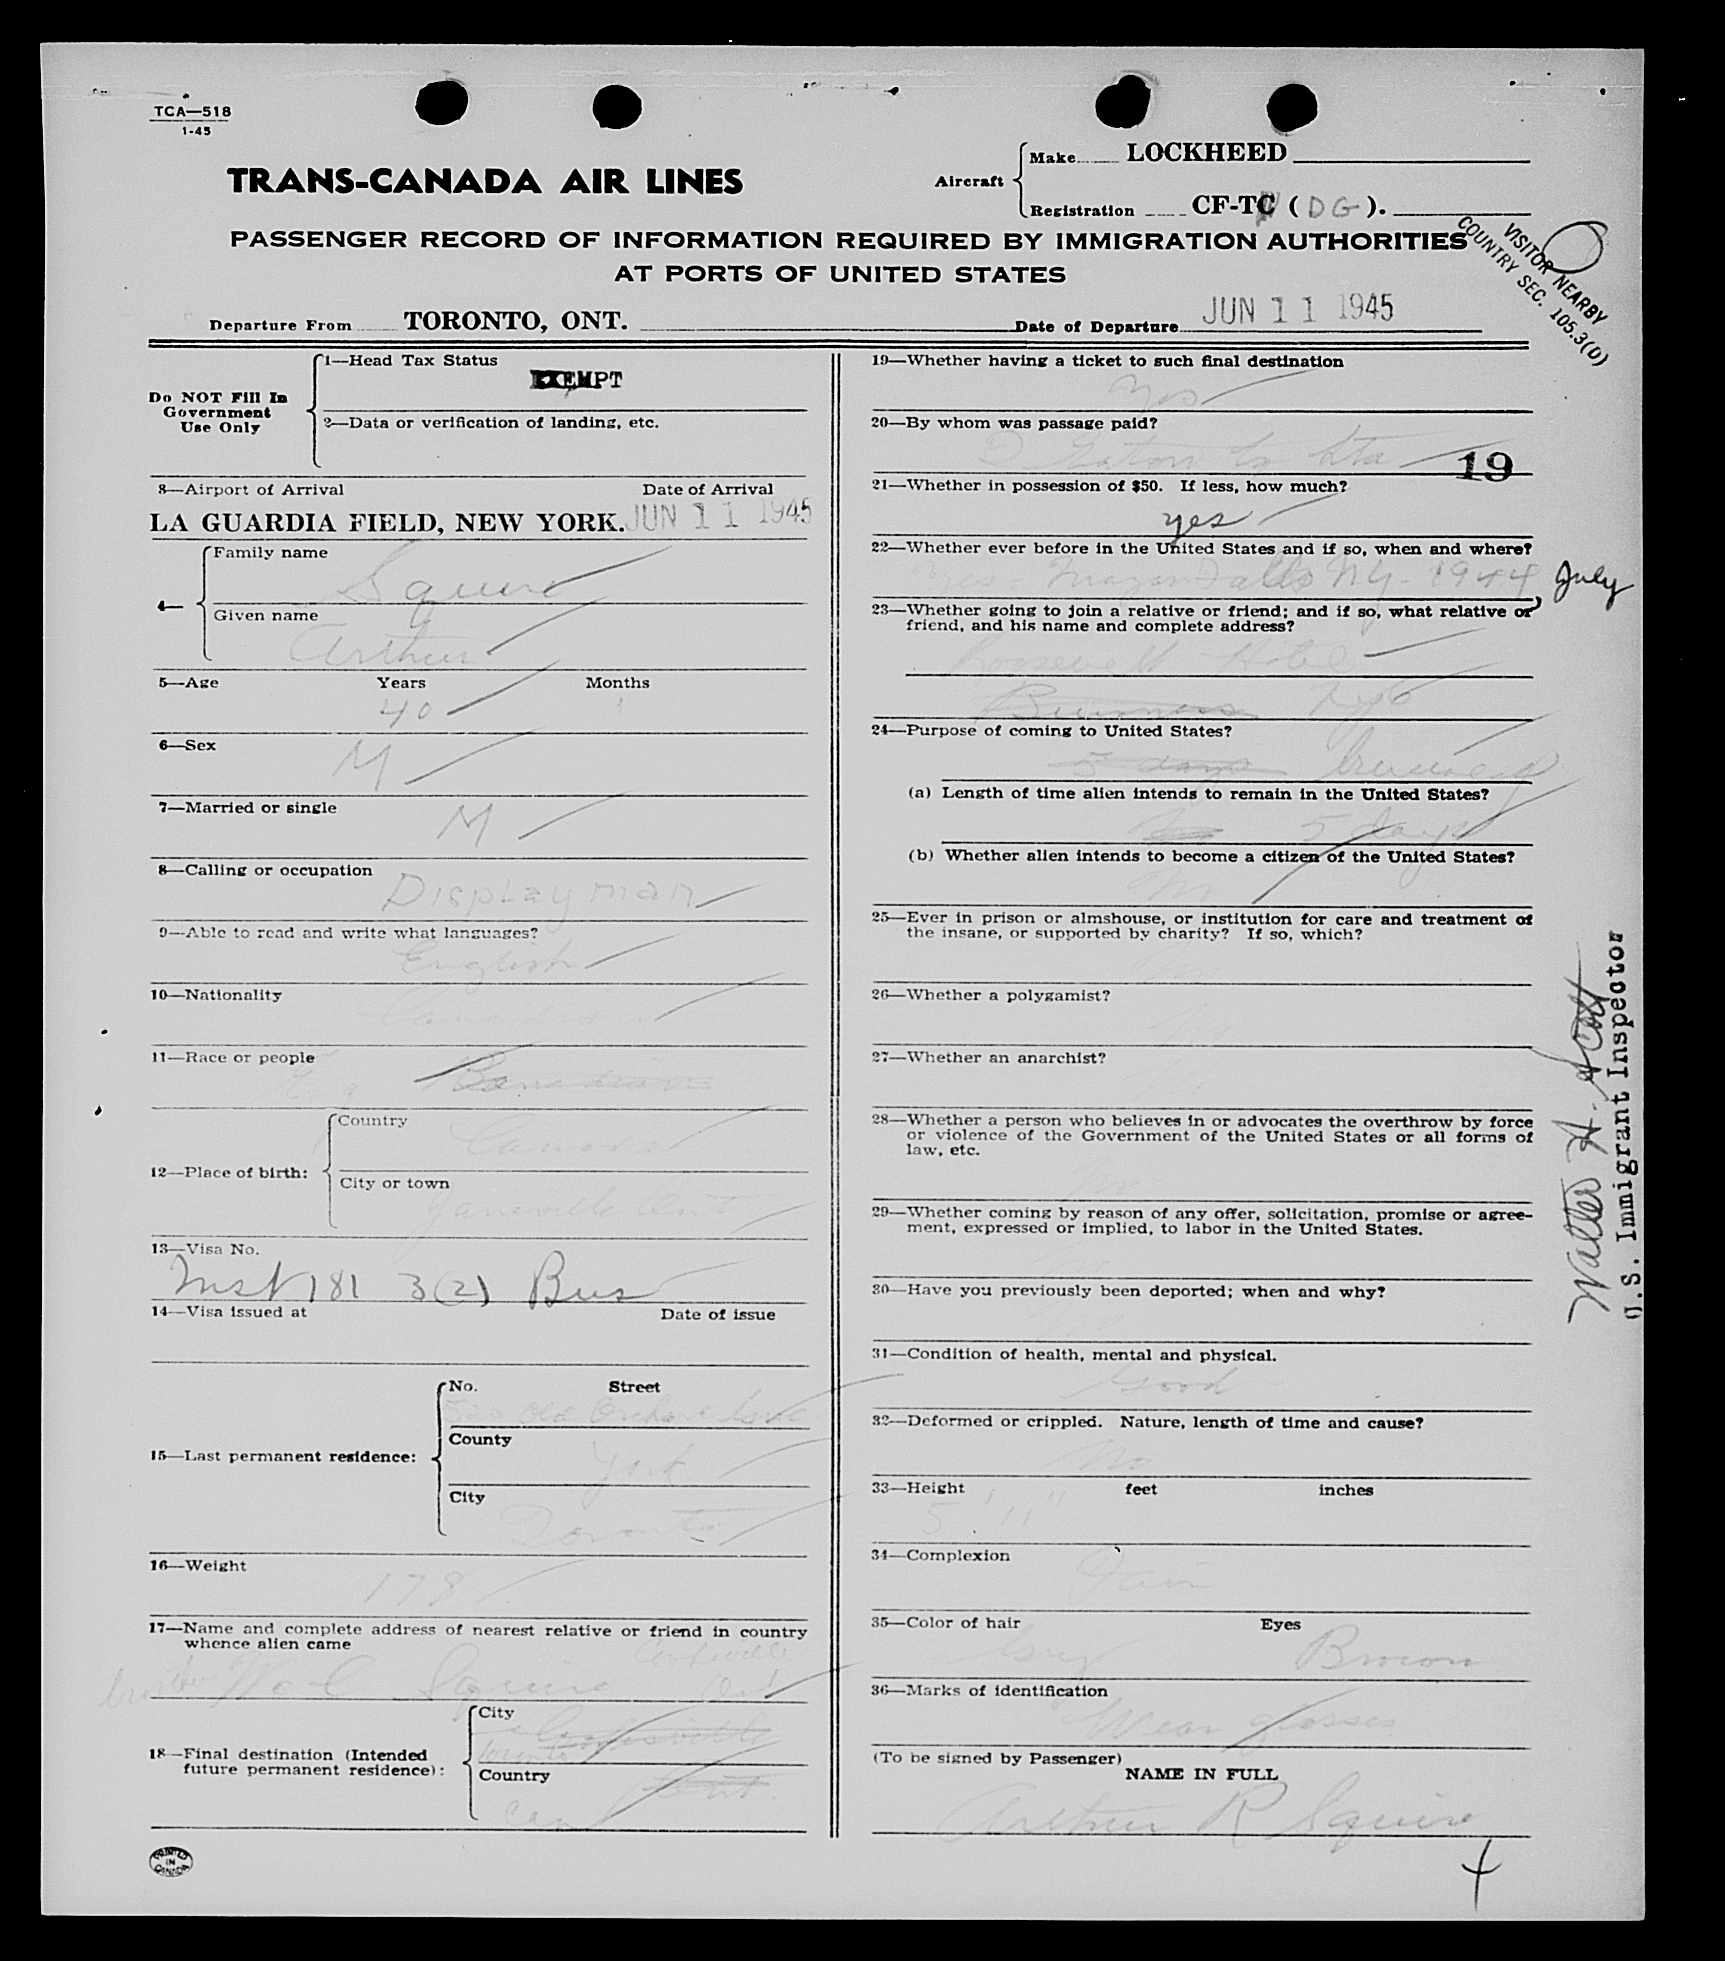 TCA—518
1-45
TRANS-CANADA AIR LINES
Aircraft
Make LOCKHEED
Registration CF-TC ( DG ).
PASSENGER RECORD OF INFORMATION REQUIRED BY IMMIGRATION AUTHORITIES
AT PORTS OF UNITED STATES
VISITOR NEARBY
COUNTRY SEC. 105.3(D)
Departure From TORONTO, ONT. Date of Departure JUN 11 1945
Do NOT Fill In
Government
Use Only
1—Head Tax Status
EXEMPT
2—Data or verification of landing, etc.
3—Airport of Arrival Date of Arrival
LA GUARDIA FIELD, NEW YORK. JUN 11 1945
4—
Family name
Squire
Given name
Arthur
5—Age Years Months
40
6—Sex
M
7—Married or single
M
8—Calling or occupation
Display man
9—Able to read and write what languages?
English
10—Nationality
Canadian
11—Race or people
Eng Canadian
12—Place of birth:
Country
Canada
City or town
Ont
13—Visa No.
181 3(2) Bus
14—Visa issued at Date of issue
15—Last permanent residence:
No. Street
Old Orchard
County
York
City
Toronto
16—Weight
178
17—Name and complete address of nearest relative or friend in country
whence alien came
Cooksville
brother Squire Ont
18—Final destination (Intended
future permanent residence):
City
Cooksville
Toronto
Country
Ont.
Can
PRINTED
IN
CANADA
19—Whether having a ticket to such final destination
Yes
20—By whom was passage paid?
Eaton Co Ltd
19
21—Whether in possession of $50. If less, how much?
yes
22—Whether ever before in the United States and if so, when and where?
Yes Falls N.Y. - 1944 July
23—Whether going to join a relative or friend; and if so, what relative or
friend, and his name and complete address?
Roosevelt Hotel
Business NYC
24—Purpose of coming to United States?
5 days business
(a) Length of time alien intends to remain in the United States?
No 5 days
(b) Whether alien intends to become a citizen of the United States?
No
25—Ever in prison or almshouse, or institution for care and treatment of
the insane, or supported by charity? If so, which?
26—Whether a polygamist?
27—Whether an anarchist?
28—Whether a person who believes in or advocates the overthrow by force
or violence of the Government of the United States or all forms of
law, etc.
No
29—Whether coming by reason of any offer, solicitation, promise or agree-
ment, expressed or implied, to labor in the United States.
30—Have you previously been deported; when and why?
No
31—Condition of health, mental and physical.
Good
32—Deformed or crippled. Nature, length of time and cause?
No
33—Height feet inches
5' 11"
34—Complexion
Fair
35—Color of hair Eyes
Grey Brown
36—Marks of identification
Wear glasses
(To be signed by Passenger)
NAME IN FULL
Arthur R Squire
Walter A. Scott
U.S. Immigrant Inspector
4